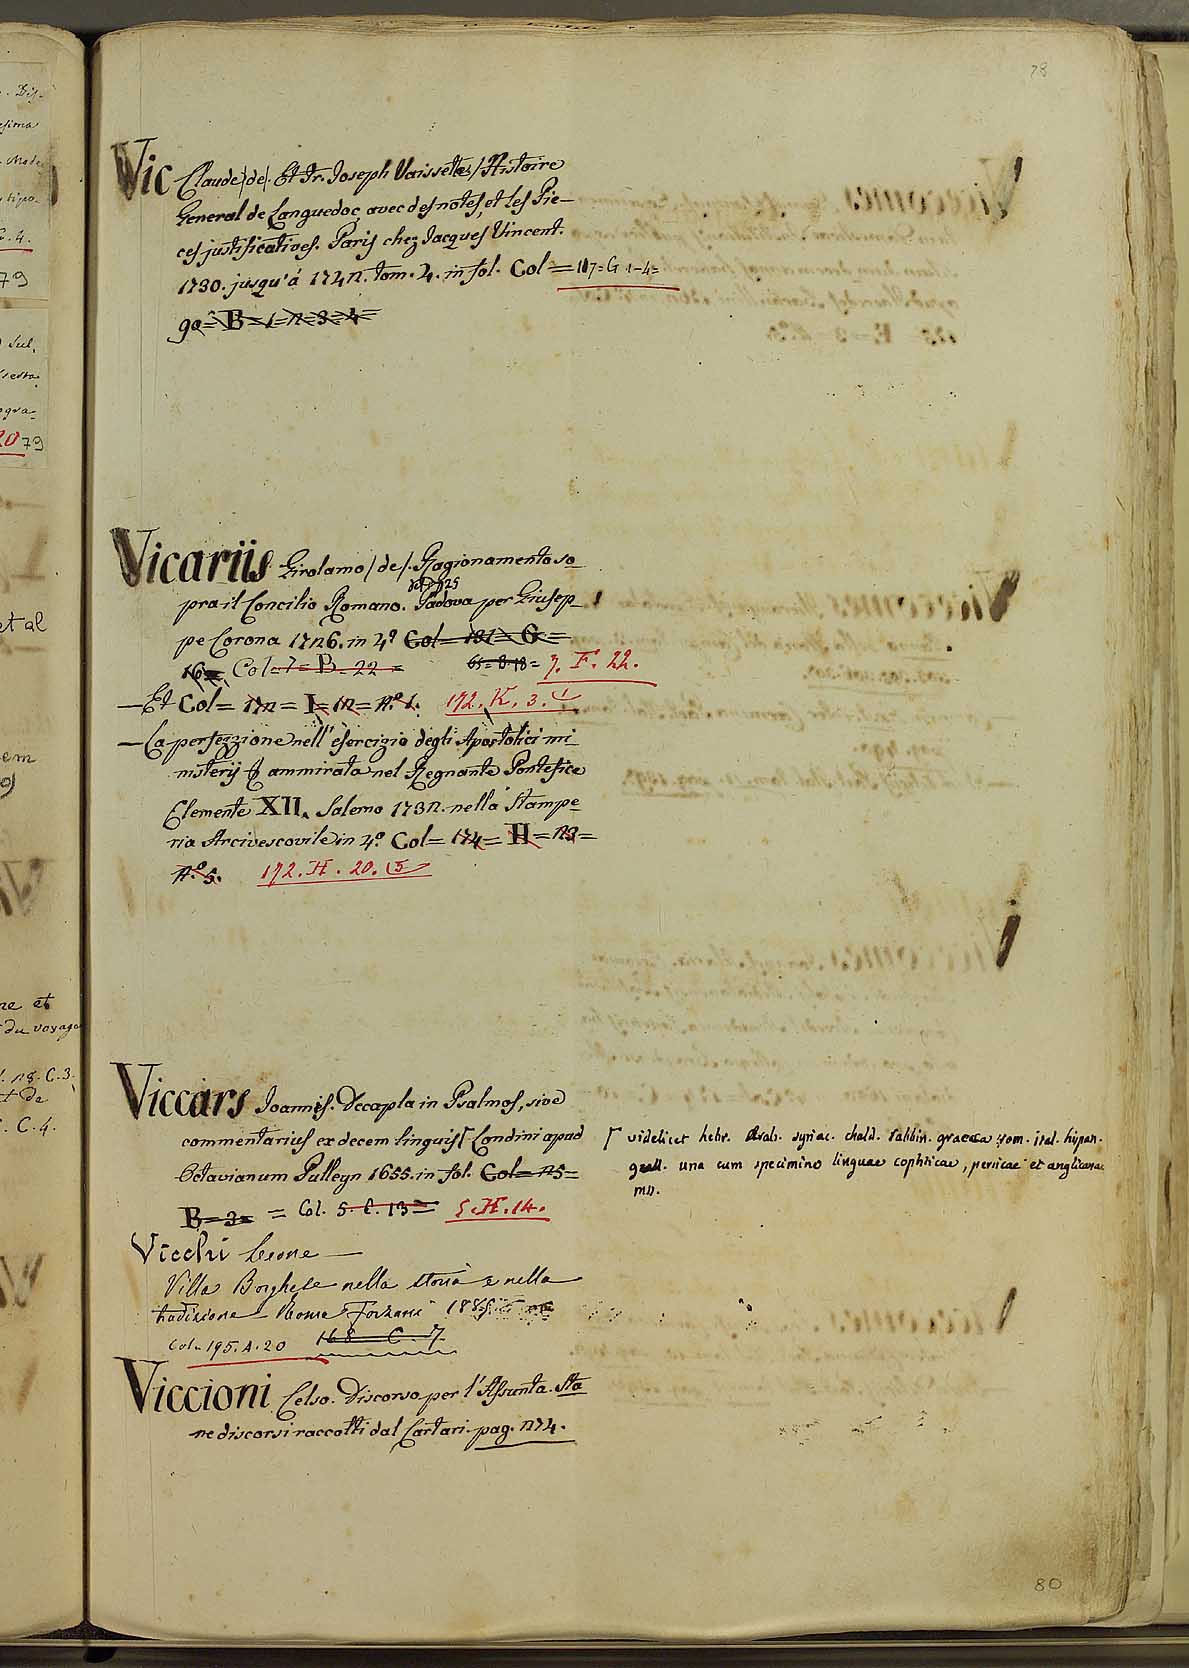 78
Vic Claude /de/. Et Fr. Joseph Vaissetes / Histoire
General de Languedoc, avec des notes, et les Pie–
ces justificatives. Paris chez Jacques Vincent.
1730. jusqu'á 1742. tom. 4. in fol. Col = 107 = G 1–4 =
90 = B = 1 = 2 = 3 = 4 =
Vicariis Girolamo /de/. Ragionamento so
pra il Concilio Romano. Padova per Giusep–
pe Corona 1726. in 4º Col = 181 = G =
16 = Col = 7 = B – 22 = 65 = B. 18 = 7. F. 22.
— Et Col = 172 = I = 12 = Nº 1. 172. K. 3. (1
— La perfezzione nell'esercizio degli Apostolici mi
nisterij ammirata nel Regnante Pontefice
Clemente XII. Salerno 1732. nella Stampe
ria Arcivescovile in 4º Col = 174 = H = 23 =
Nº 5. 172. H. 20. (5
Viccars Joannis. Decapla in Psalmos, sive
commentarius ex decem linguis ⌈ Londini apud
Octavianum Pulleyn 1655. in fol. Col = 25 =
B = 3 = = Col. 5. C. 13 = 5. H. 14.
⌈ videlicet hebr. Arab. syriac. chald. rabbin. graeca rom. ital. hispan.
gall. una cum specimine linguae cophticae, persicae et anglicanae
Vicchi Leone —
Villa Borghese nella storia e nella
tradizione Roma Forzani
Col = 195. A. 20 168 = C. 7
Viccioni Celso. Discorso per l'Assunta. Sta
ne discorsi raccolti dal Cartari. pag. 274.
80